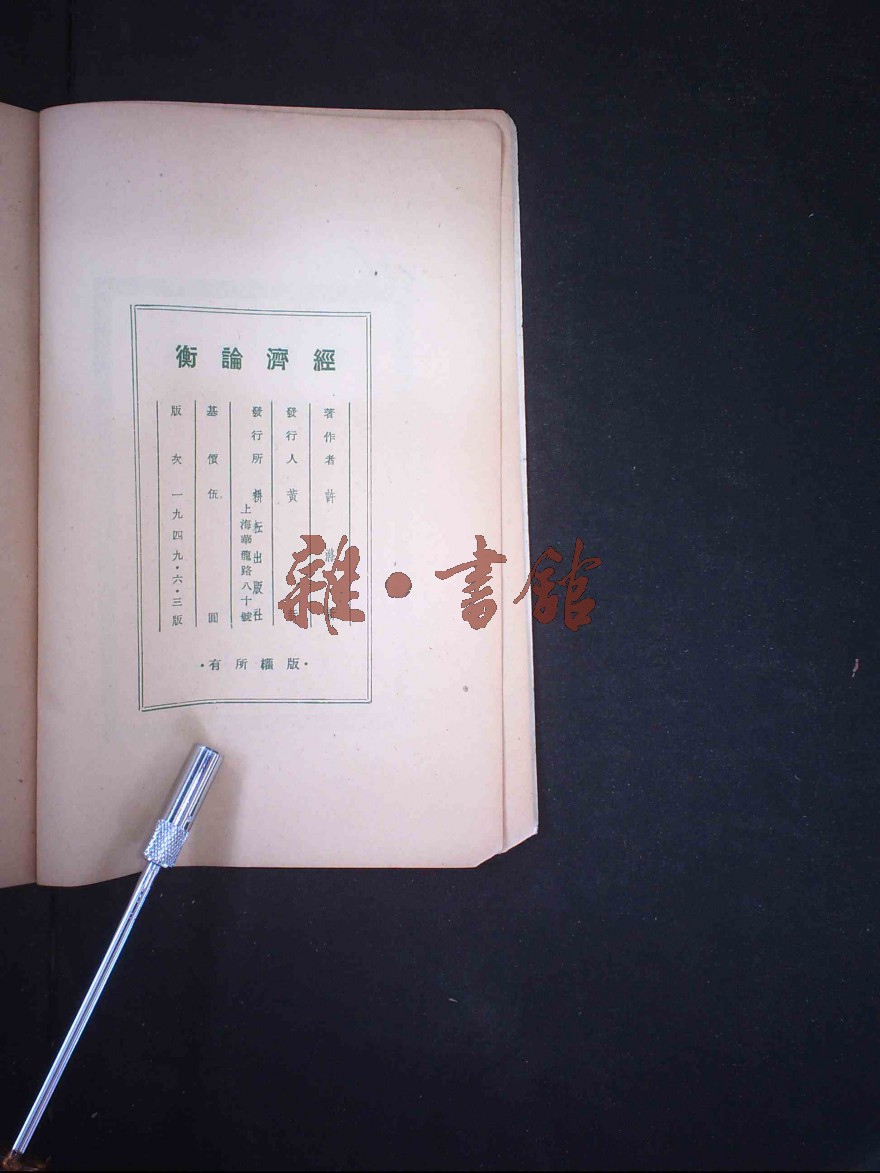 經濟論衡
著作者 許
發行人 黃
發行所 耕耘出版社
上海華龍路八十號
基價 伍 圓
版次 一九四九·六·三版
·版權所有·
雜·書館